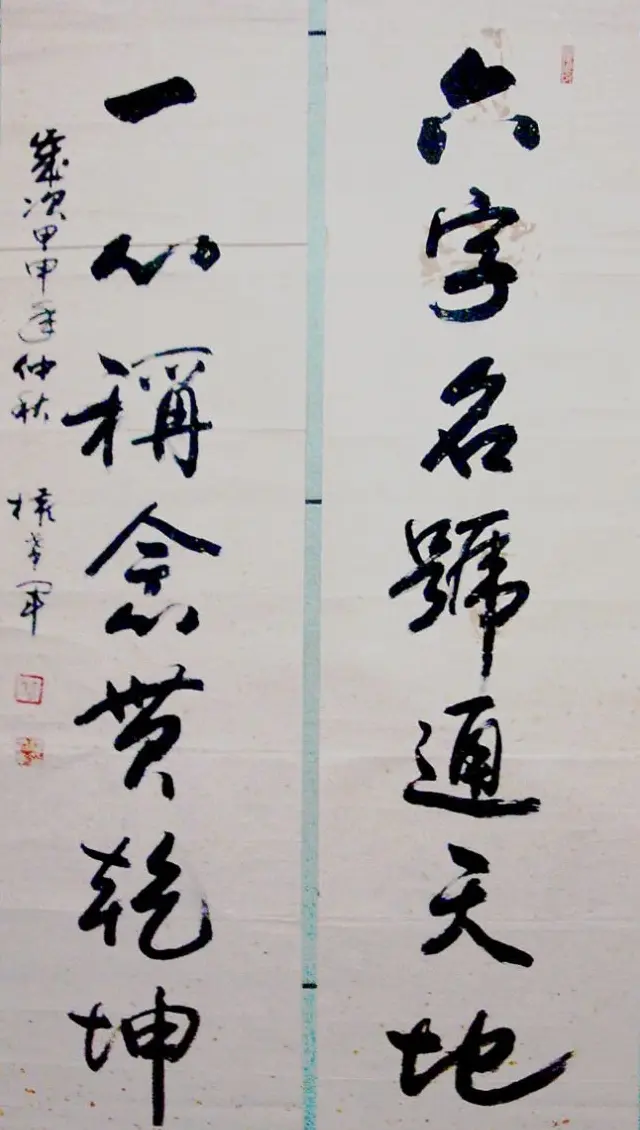 六字名號通天地
一心稱念贯乾坤
歲次甲申年仲秋